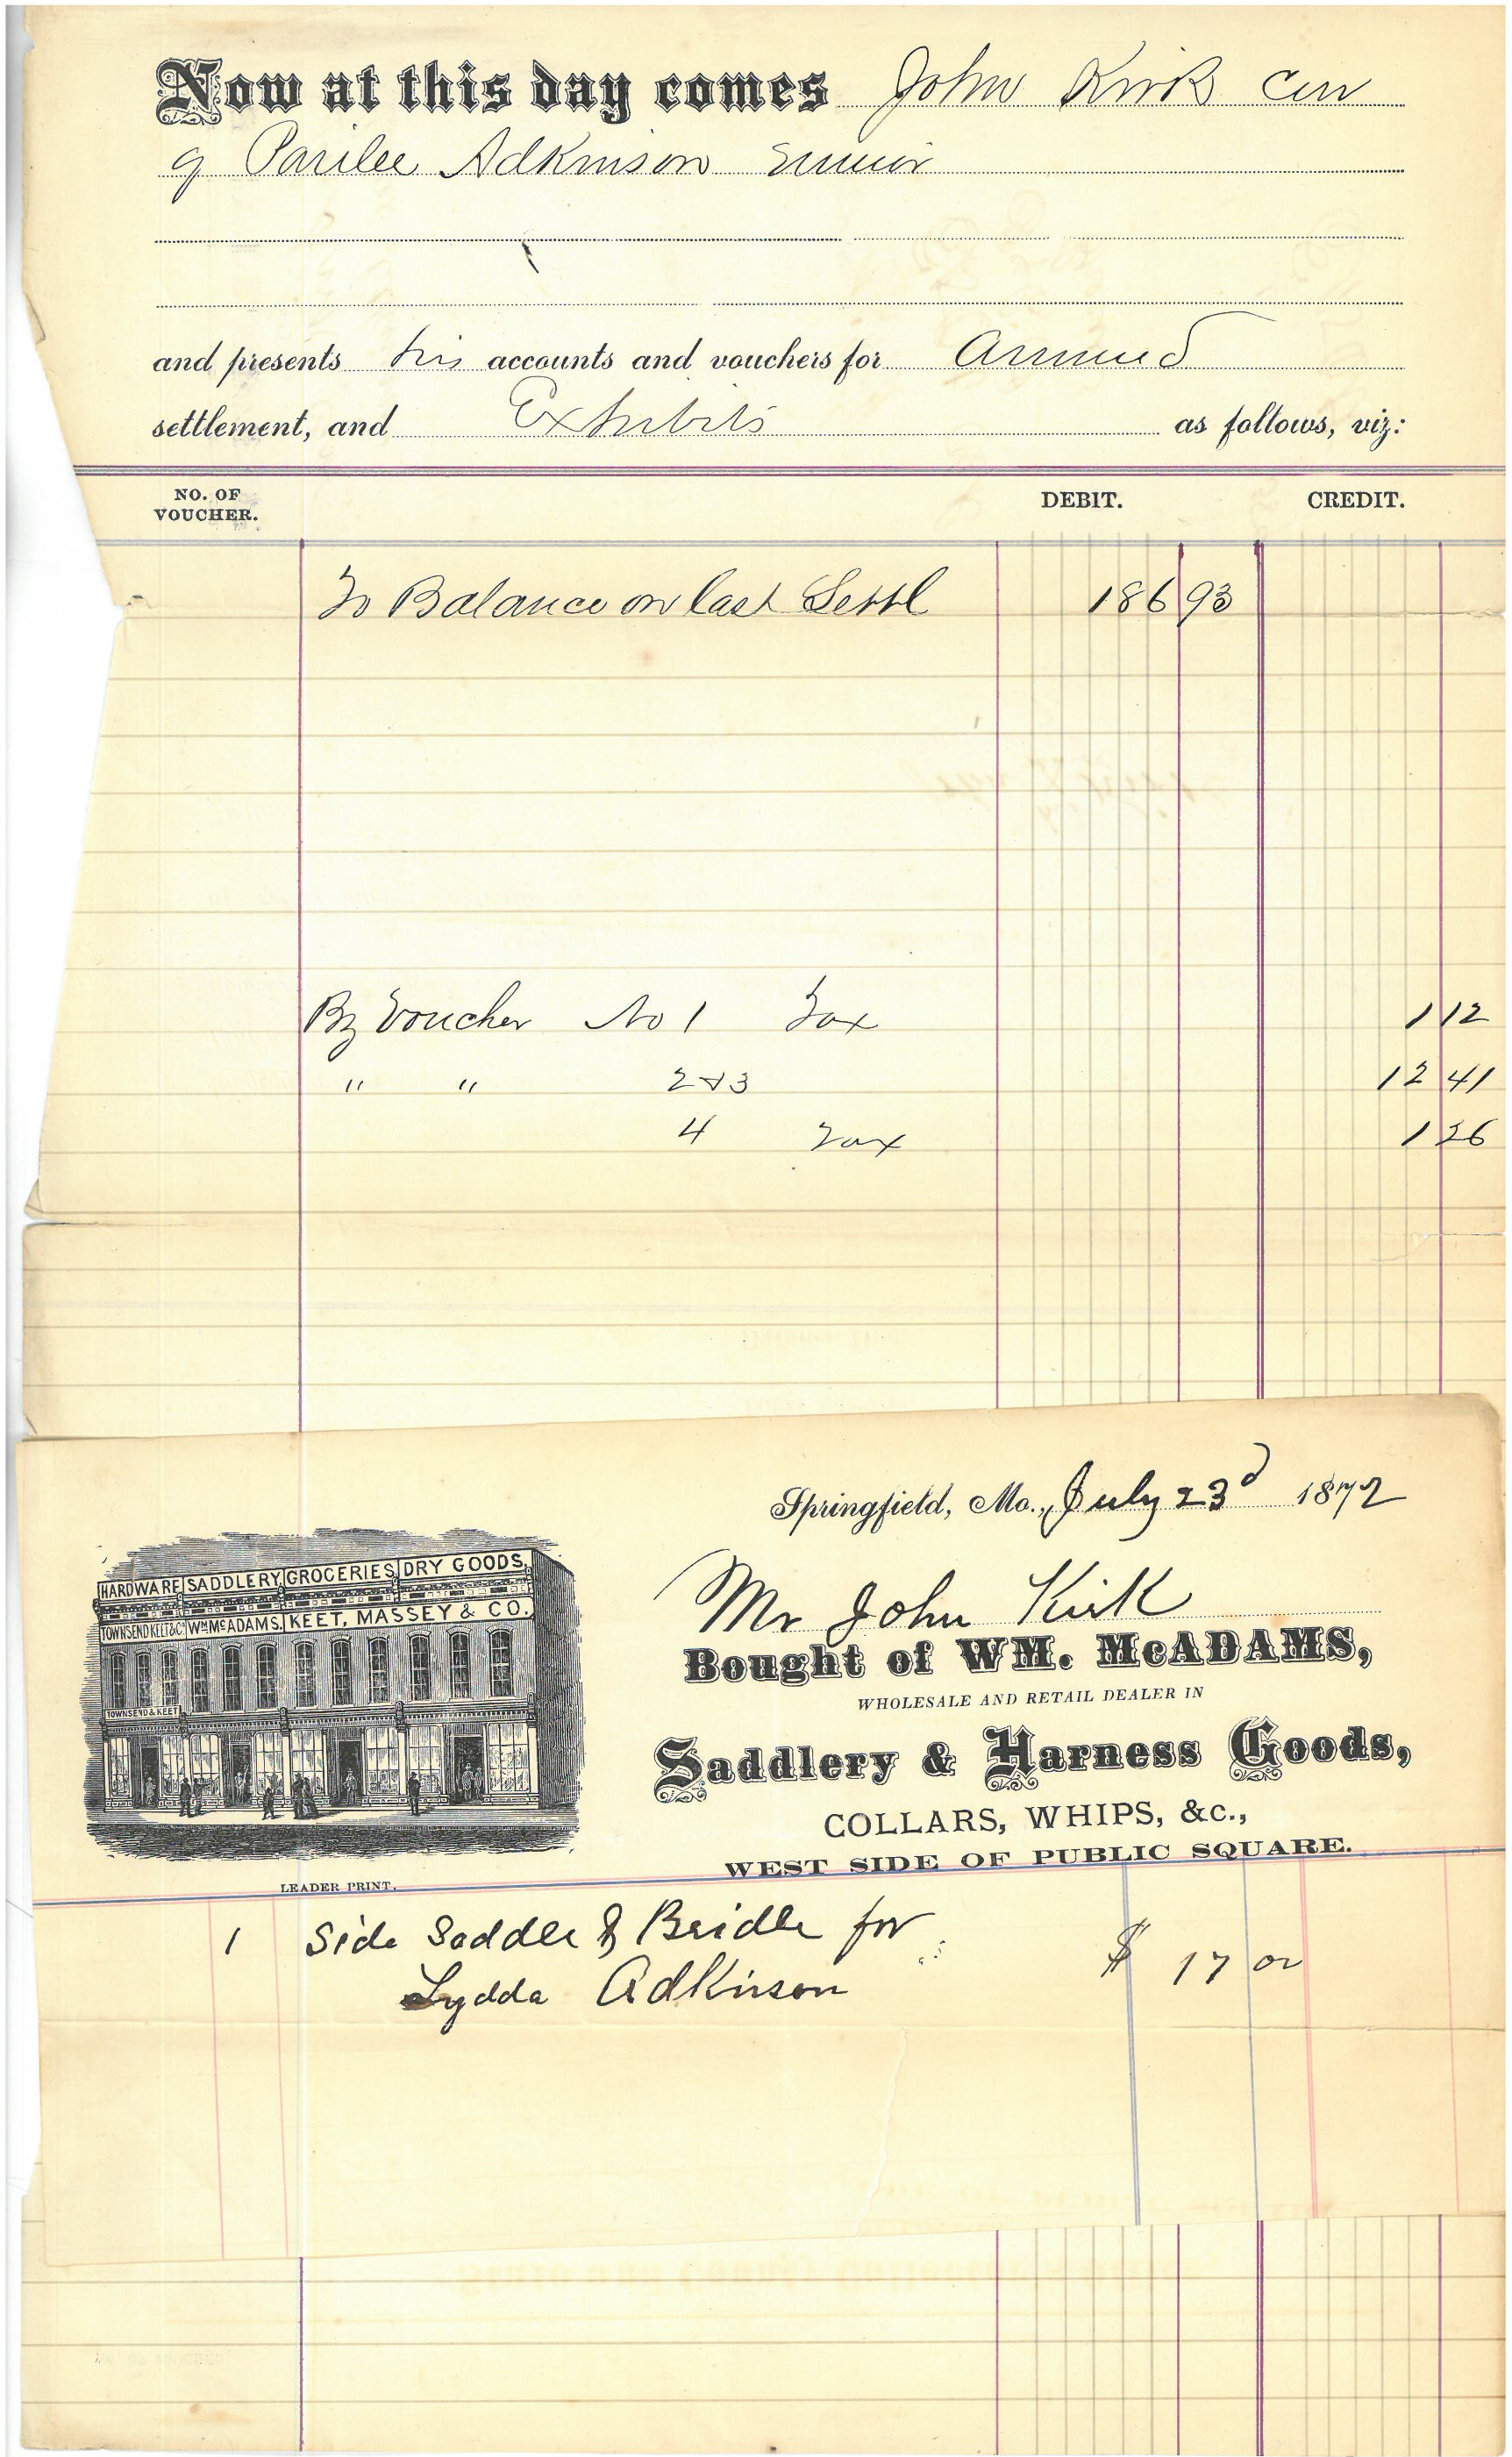 Now at this day comes John Kirk Cur
of Parilee Adkinson Minor
and presents his accounts and vouchers for Annual
settlement, and Exhibits as follows, viz:
NO. OF VOUCHER. DEBIT. CREDIT.
To Balance on last Settl 186 93
By Voucher No 1 Tax 1 12
" " 2 & 3 12 41
4 Tax 1 26
Springfield, Mo., July 23d 1872
HARDWARE SADDLERY GROCERIES DRY GOODS.
TOWNSEND KEET & Co WM McADAMS. KEET, MASSEY & CO.
TOWNSEND & KEET
Mr John Kirk
Bought of WM. McADAMS,
WHOLESALE AND RETAIL DEALER IN
Saddlery & Harness Goods,
COLLARS, WHIPS, &c.,
WEST SIDE OF PUBLIC SQUARE.
LEADER PRINT.
1 Side Saddle & Bridle for
Lydda Adkinson $ 17 00